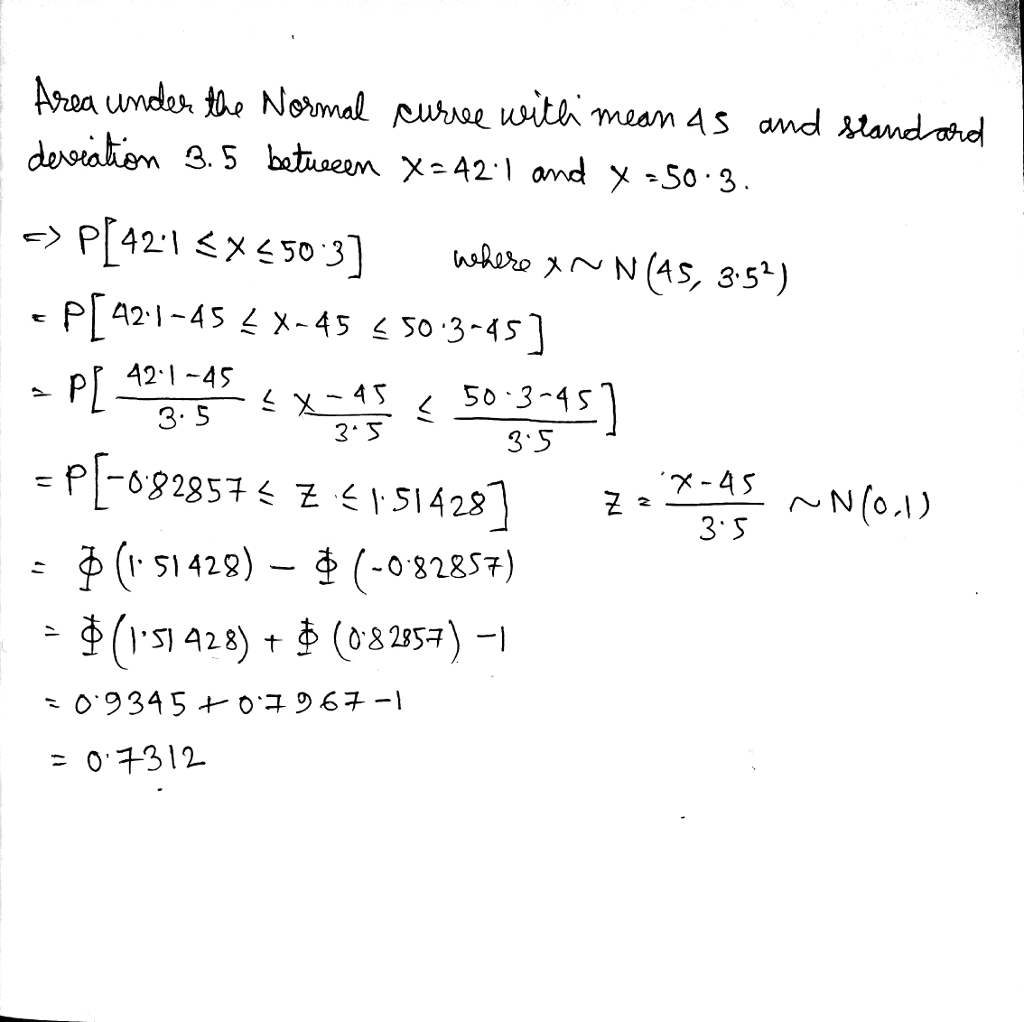 Area under the Normal curve with mean 45 and standard
deviation 3.5 between X=42.1 and X=50.3.
=> P[42.1 ≤ X ≤ 50.3] where X ~ N(45, 3.5²)
= P[42.1-45 ≤ X-45 ≤ 50.3-45]
= P[(42.1-45)/3.5 ≤ (X-45)/3.5 ≤ (50.3-45)/3.5]
= P[-0.82857 ≤ Z ≤ 1.51428] Z = (X-45)/3.5 ~ N(0,1)
= Φ(1.51428) - Φ(-0.82857)
= Φ(1.51428) + Φ(0.82857) -1
= 0.9345 + 0.7967 -1
= 0.7312